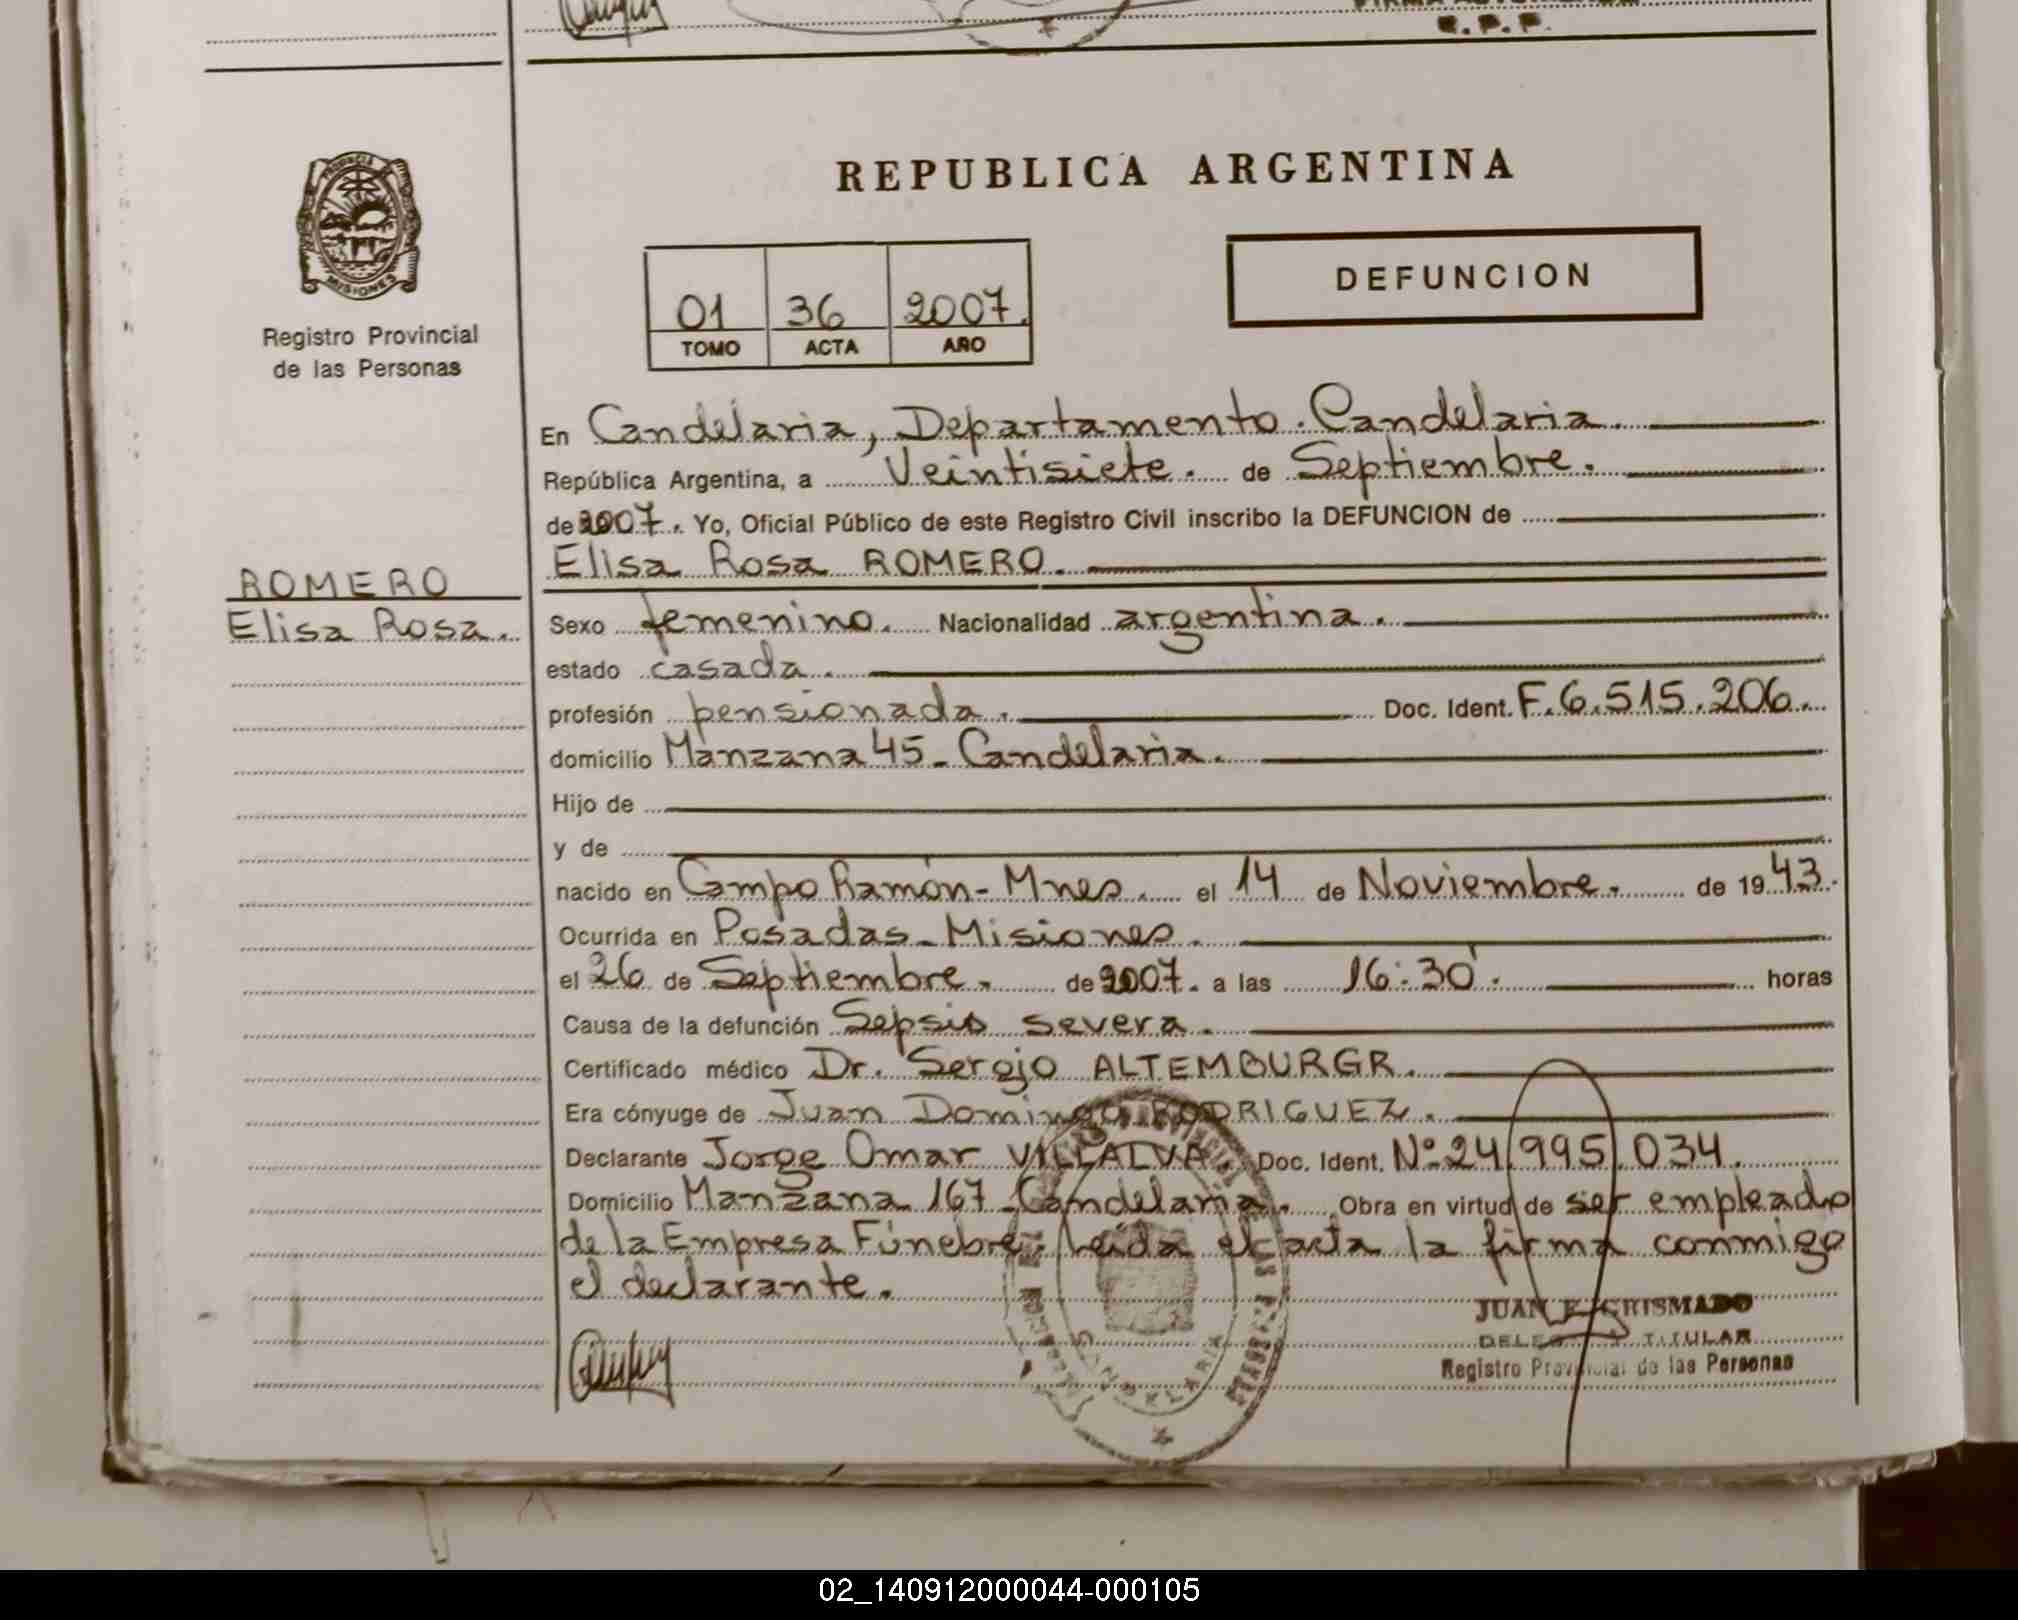 E.P.P.
PROVINCIA
MISIONES
Registro Provincial
de las Personas
REPUBLICA ARGENTINA
DEFUNCION
01 36 2007.
TOMO ACTA AÑO
En Candelaria, Departamento. Candelaria.
República Argentina, a Veintisiete. de Septiembre.
de 2007. Yo, Oficial Público de este Registro Civil inscribo la DEFUNCION de
Elisa Rosa ROMERO.
ROMERO
Elisa Rosa.
Sexo femenino. Nacionalidad argentina.
estado casada.
profesión pensionada. Doc. Ident. F.6.515.206.
domicilio Manzana 45- Candelaria.
Hijo de
y de
nacido en Campo Ramón- Mnes. el 14 de Noviembre. de 1943.
Ocurrida en Posadas- Misiones.
el 26 de Septiembre. de 2007. a las 16:30'. horas
Causa de la defunción Sepsis severa.
Certificado médico Dr. Sergio ALTEMBURGR.
Era cónyuge de Juan Domingo RODRIGUEZ.
Declarante Jorge Omar VILLALVA. Doc. Ident. Nº 24.995.034.
Domicilio Manzana 167- Candelaria. Obra en virtud de ser empleado
de la Empresa Fúnebre. Leída el acta la firma conmigo
el declarante.
JUAN E. GRISMADO
DELEGADO TITULAR
Registro Provincial de las Personas
CANDELARIA
02_140912000044-000105